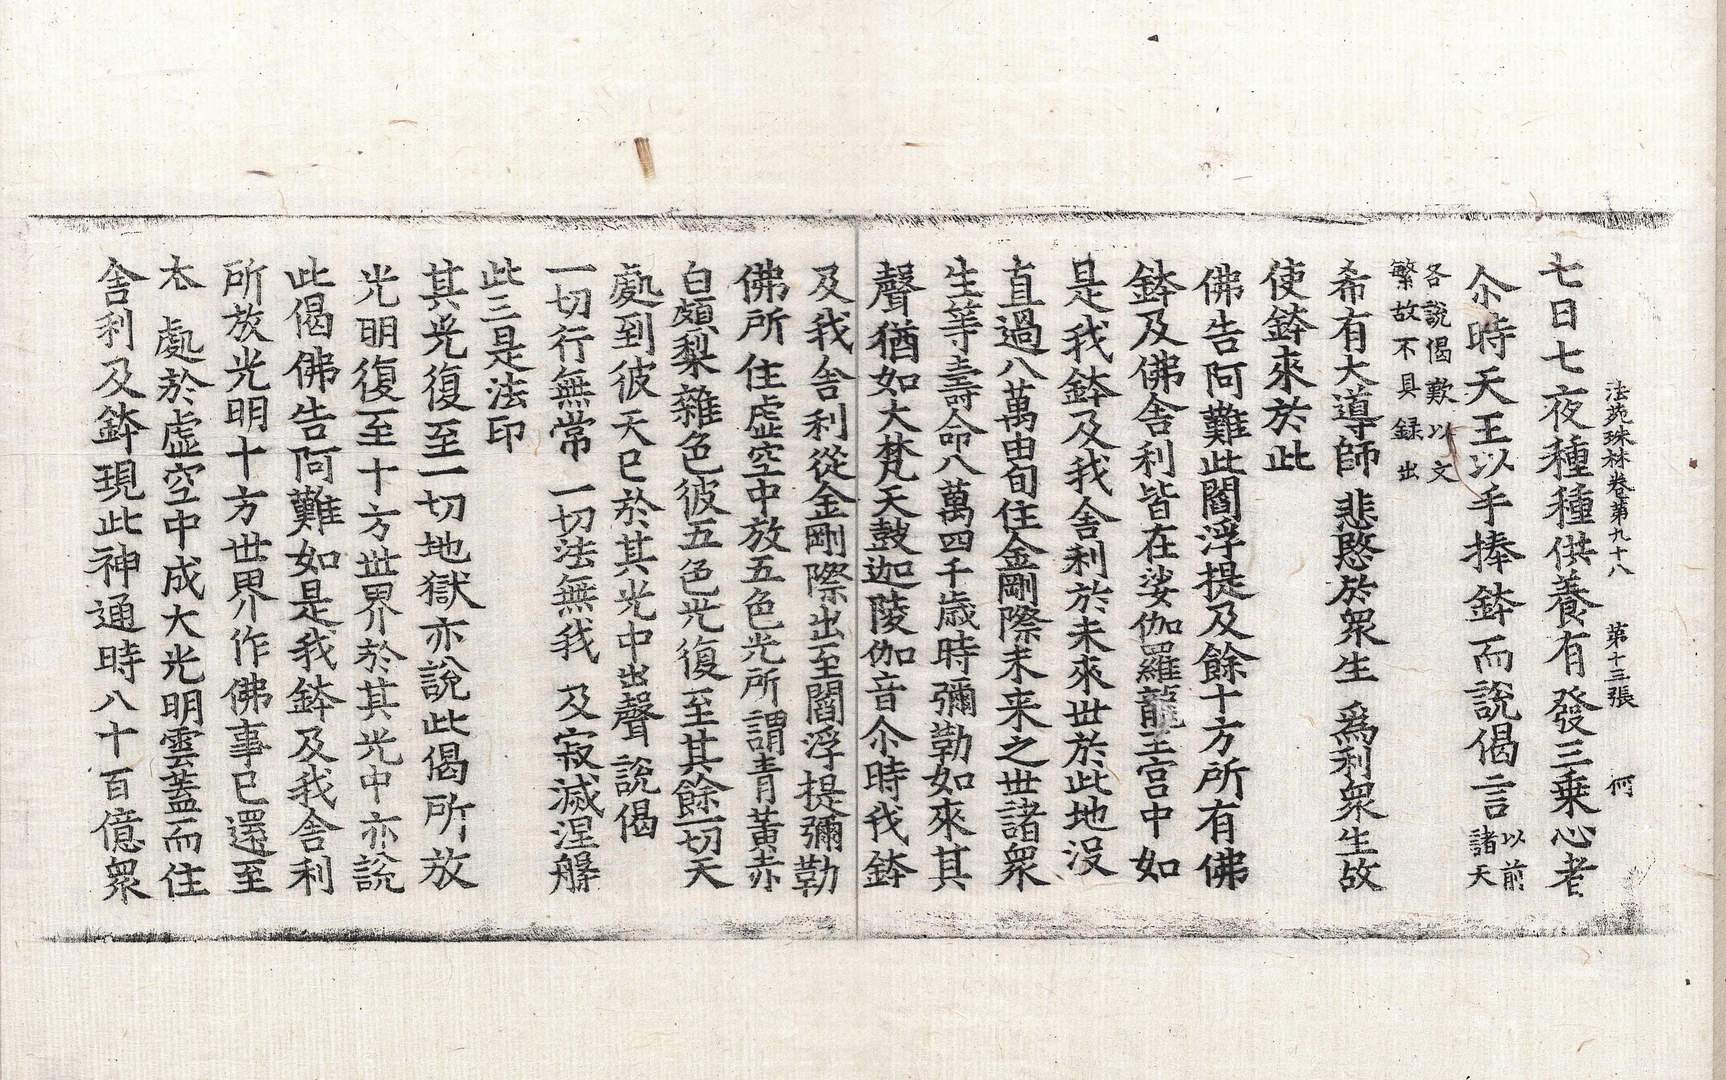 法苑珠林卷第九十八　第十三張　何
七日七夜種種供養有發三乗心者
尒時天王以手捧鉢而說偈言以前諸天
各說偈歎以文
繁故不具録出
希有大導師　悲愍於衆生　爲利衆生故
使鉢來於此
佛告阿難此閻浮提及餘十方所有佛
鉢及佛舍利皆在娑伽羅龍王宮中如
是我鉢及我舍利於未來世於此地没
直過八萬由旬住金剛際未来之世諸衆
生等壽命八萬四千歲時彌勒如來其
聲猶如大梵天鼓迦陵伽音尒時我鉢
及我舍利從金剛際出至閻浮提彌勒
佛所住虛空中放五色光所謂青黃赤
白頗梨雜色彼五色光復至其餘一切天
處到彼天已於其光中出聲說偈
一切行無常　一切法無我　及寂滅涅槃
此三是法印
其光復至一切地獄亦說此偈所放
光明復至十方世界於其光中亦說
此偈佛告阿難如是我鉢及我舍利
所放光明十方世界作佛事已還至
本處於虛空中成大光明雲蓋而住
舍利及鉢現此神通時八十百億衆